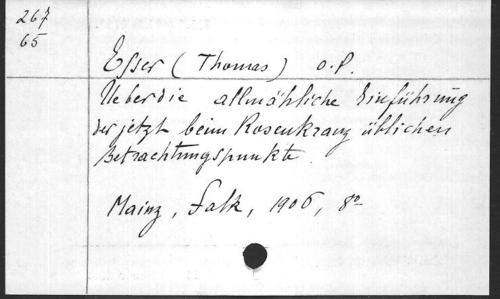 267
65
Esser (Thomas) O.P.
Ueber die allmähliche Einführung
der jetzt beim Rosenkranz üblichen
Betrachtungspunkte.
Mainz, Falk, 1906, 8º